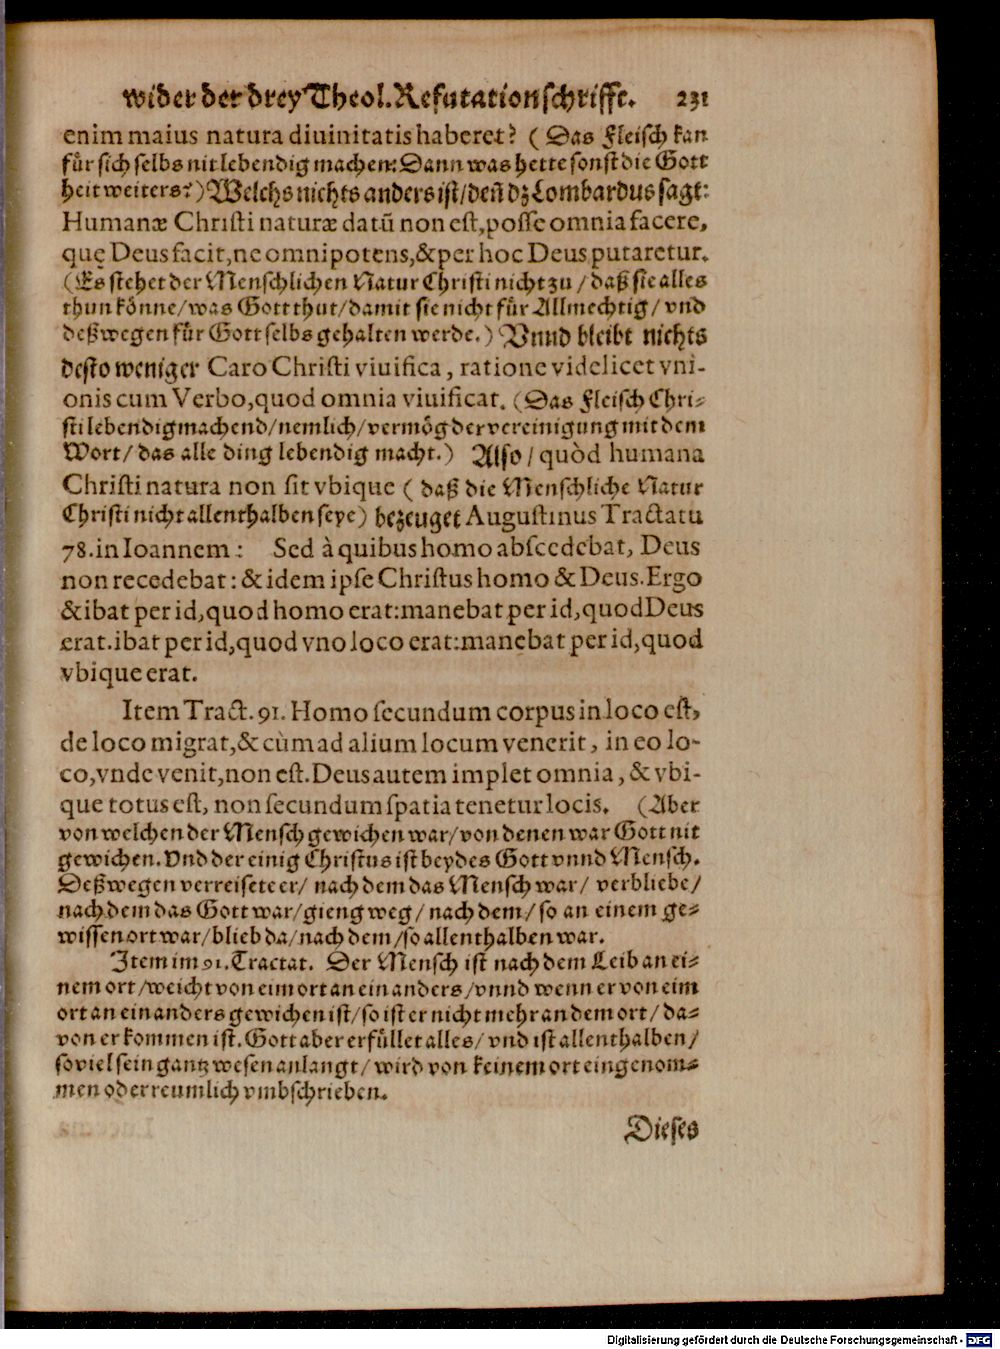 wider der drey Theol. Refutationschrifft. 231
enim maius natura diuinitatis haberet? (Das Fleisch kan
fuͤr sich selbs nit lebendig machen: Dann was hette sonst die Gott
heit weiters?) Welchs nichts anders ist/ deñ dz Lombardus sagt:
Humanæ Christi naturæ datũ non est, posse omnia facere,
quę Deus facit, ne omnipotens, & per hoc Deus putaretur.
(Es stehet der Menschlichen Natur Christi nicht zu / daß sie alles
thun koͤnne/ was Gott thut/ damit sie nicht fuͤr Allmechtig/ vnd
deßwegen fuͤr Gott selbs gehalten werde.) Vnnd bleibt nichts
desto weniger Caro Christi viuifica, ratione videlicet vni-
onis cum Verbo, quod omnia viuificat. (Das Fleisch Chri-
sti lebendigmachend/ nemlich/ vermoͤg der vereinigung mit dem
Wort/ das alle ding lebendig macht.) Also / quòd humana
Christi natura non sit vbique ( daß die Menschliche Natur
Christi nicht allenthalben seye) bezeuget Augustinus Tractatu
78. in Ioannem: Sed à quibus homo abscedebat, Deus
non recedebat: & idem ipse Christus homo & Deus. Ergo
& ibat per id, quod homo erat: manebat per id, quod Deus
erat. ibat per id, quod vno loco erat: manebat per id, quod
vbique erat.
Item Tract. 91. Homo secundum corpus in loco est,
de loco migrat, & cùm ad alium locum venerit, in eo lo-
co, vnde venit, non est. Deus autem implet omnia, & vbi-
que totus est, non secundum spatia tenetur locis. (Aber
von welchen der Mensch gewichen war/ von denen war Gott nit
gewichen. Vnd der einig Christus ist beydes Gott vnnd Mensch.
Deßwegen verreisete er/ nach dem das Mensch war/ verbliebe/
nach dem das Gott war/ gieng weg / nach dem / so an einem ge-
wissen ort war/ blieb da/ nach dem / so allenthalben war.
Item im 91. Tractat. Der Mensch ist nach dem Leib an ei-
nem ort / weicht von eim ort an ein anders/ vnnd wenn er von eim
ort an ein anders gewichen ist/ so ist er nicht mehr an dem ort / da-
von er kommen ist. Gott aber erfuͤllet alles/ vnd ist allenthalben/
so viel sein gantz wesen anlangt/ wird von keinem ort eingenom-
men oder reumlich vmbschrieben.
Dieses
Digitalisierung gefördert durch die Deutsche Forschungsgemeinschaft - DFG